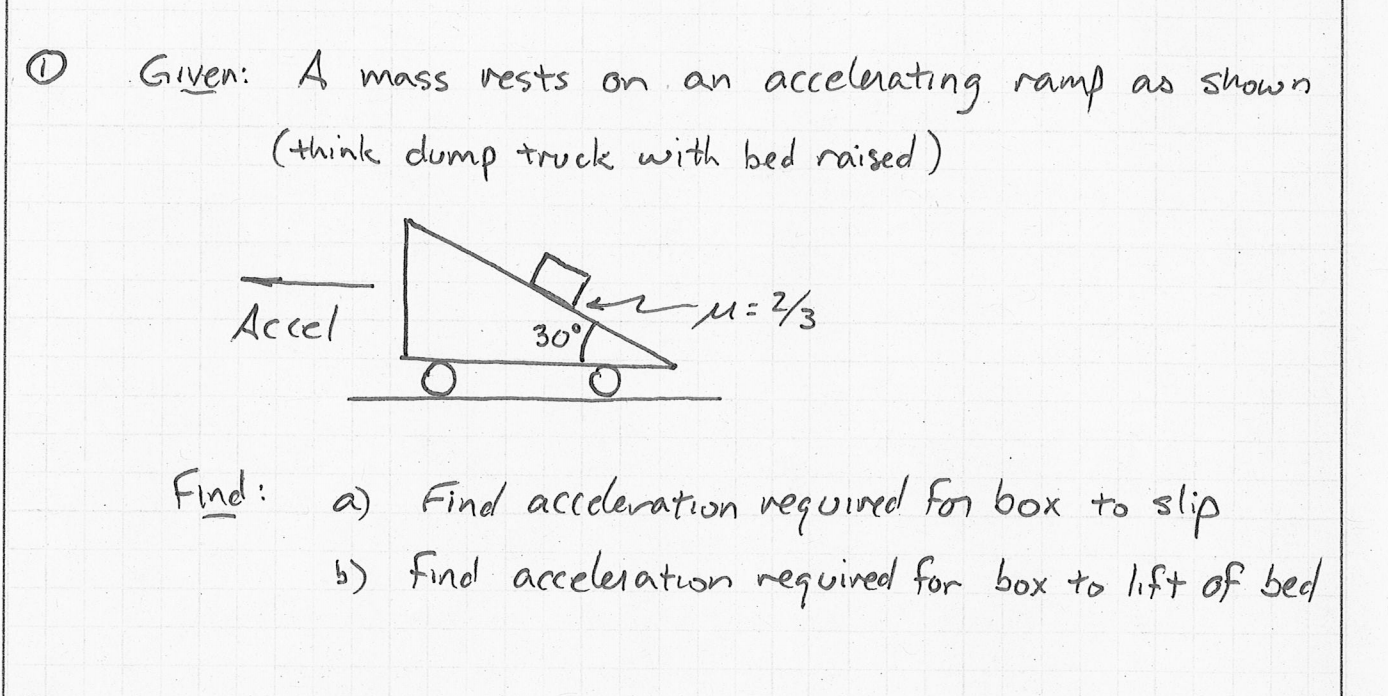 ① Given: A mass rests on an accelerating ramp as shown
(think dump truck with bed raised)
Accel
30°
μ = 2/3
Find: a) Find acceleration required for box to slip
b) Find acceleration required for box to lift of bed